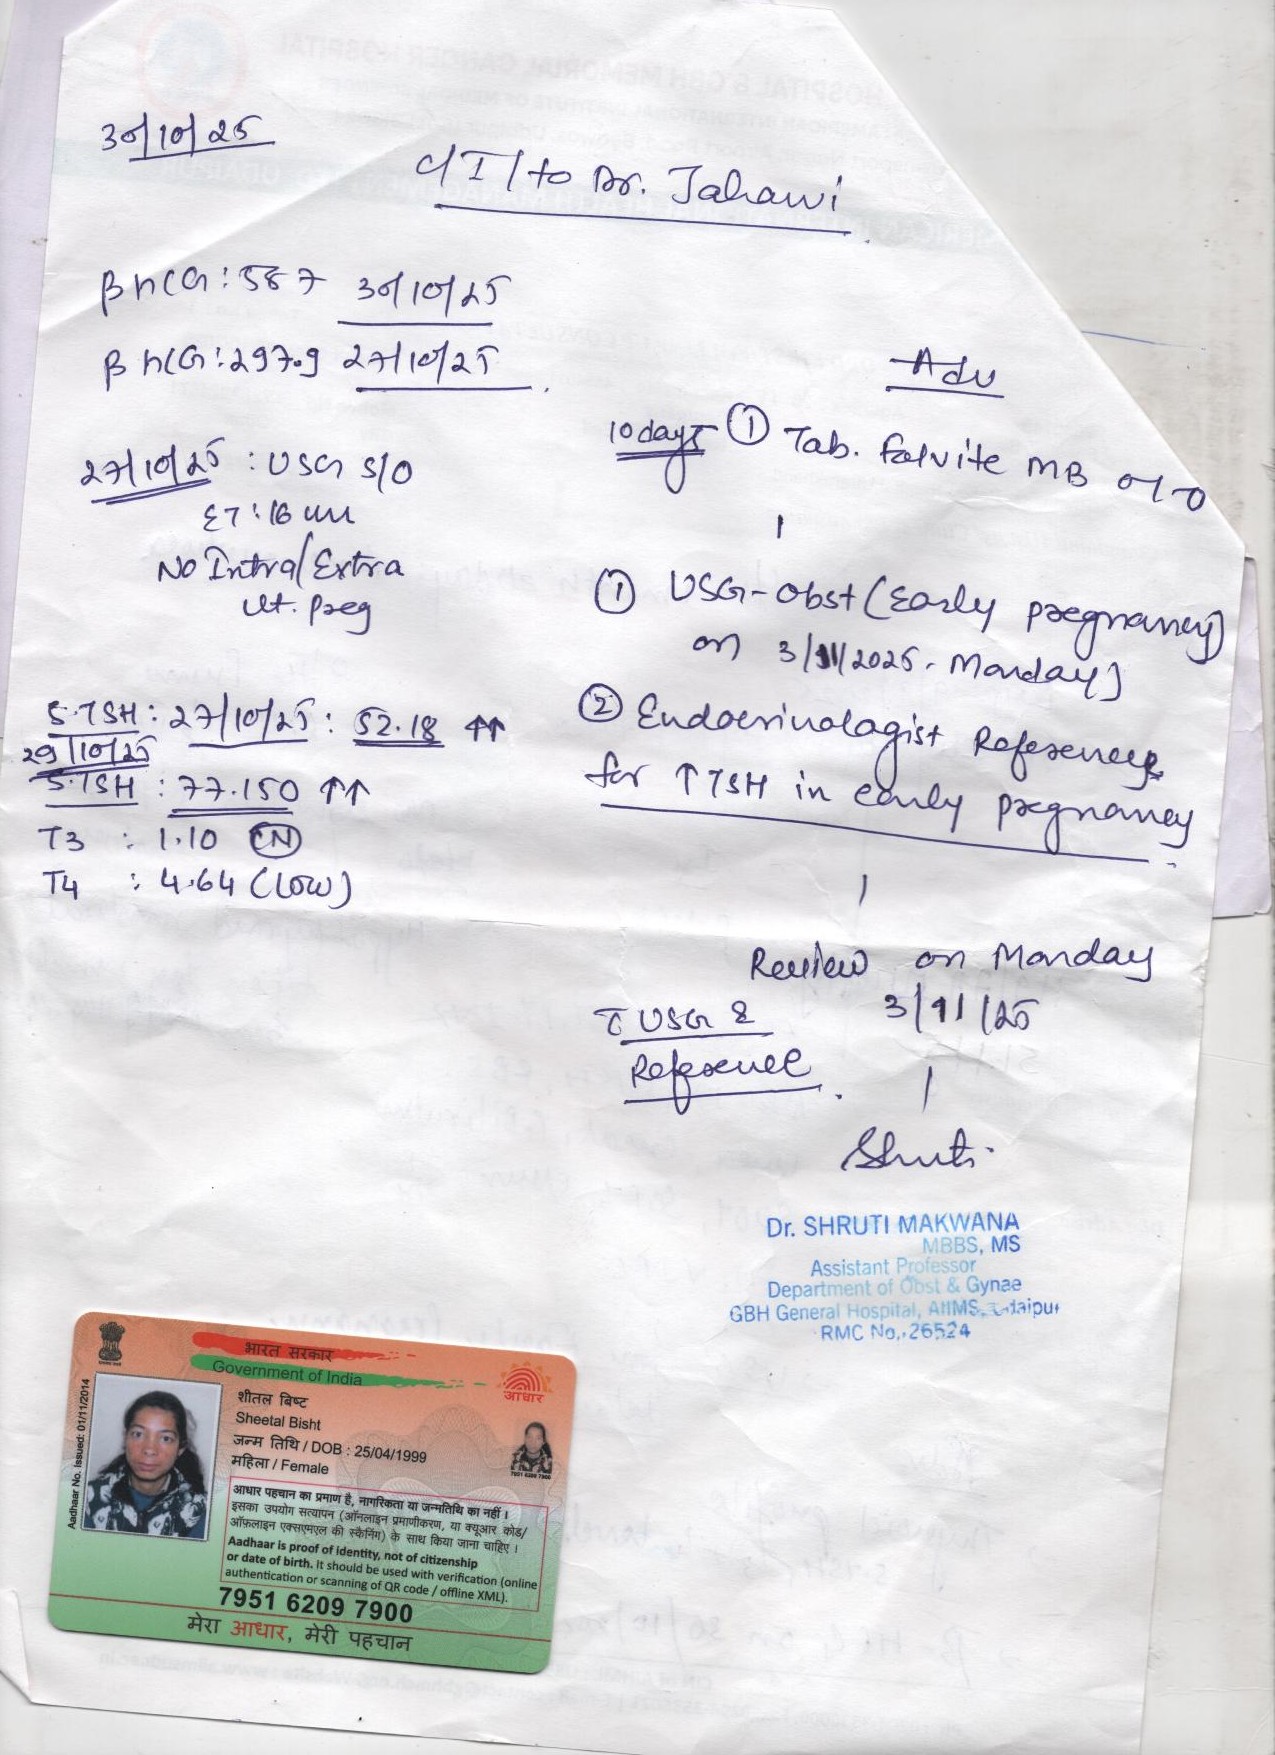 30/10/25
C/I/to Dr. Jahawi
β hCG : 587 30/10/25
β hCG : 297.9 27/10/25
27/10/25 : USG S/O
ET : 16 mm
No Intra/Extra
Ut. Preg
S.TSH : 27/10/25 : 52.18 ↑↑
29/10/25
S.TSH : 77.150 ↑↑
T3 : 1.10 (N)
T4 : 4.64 (Low)
Adv
10 days ① Tab. Folvite MB OD
① USG-Obst (Early pregnancy)
on 3/11/2025. Monday)
② Endocrinologist Reference
for ↑TSH in early pregnancy
Review on Monday
3/11/25
c̄ USG &
Reference
Shruti
Dr. SHRUTI MAKWANA
MBBS, MS
Assistant Professor
Department of Obst & Gynae
GBH General Hospital, AIIMS, Udaipur
RMC No. 26524
भारत सरकार
Government of India
आधार
Aadhaar No. Issued: 01/11/2014
शीतल बिष्ट
Sheetal Bisht
जन्म तिथि / DOB : 25/04/1999
महिला / Female
7951 6209 7900
आधार पहचान का प्रमाण है, नागरिकता या जन्मतिथि का नहीं ।
इसका उपयोग सत्यापन (ऑनलाइन प्रमाणीकरण, या क्यूआर कोड/
ऑफ़लाइन एक्सएमएल की स्कैनिंग) के साथ किया जाना चाहिए ।
Aadhaar is proof of identity, not of citizenship
or date of birth. It should be used with verification (online
authentication or scanning of QR code / offline XML).
7951 6209 7900
मेरा आधार, मेरी पहचान